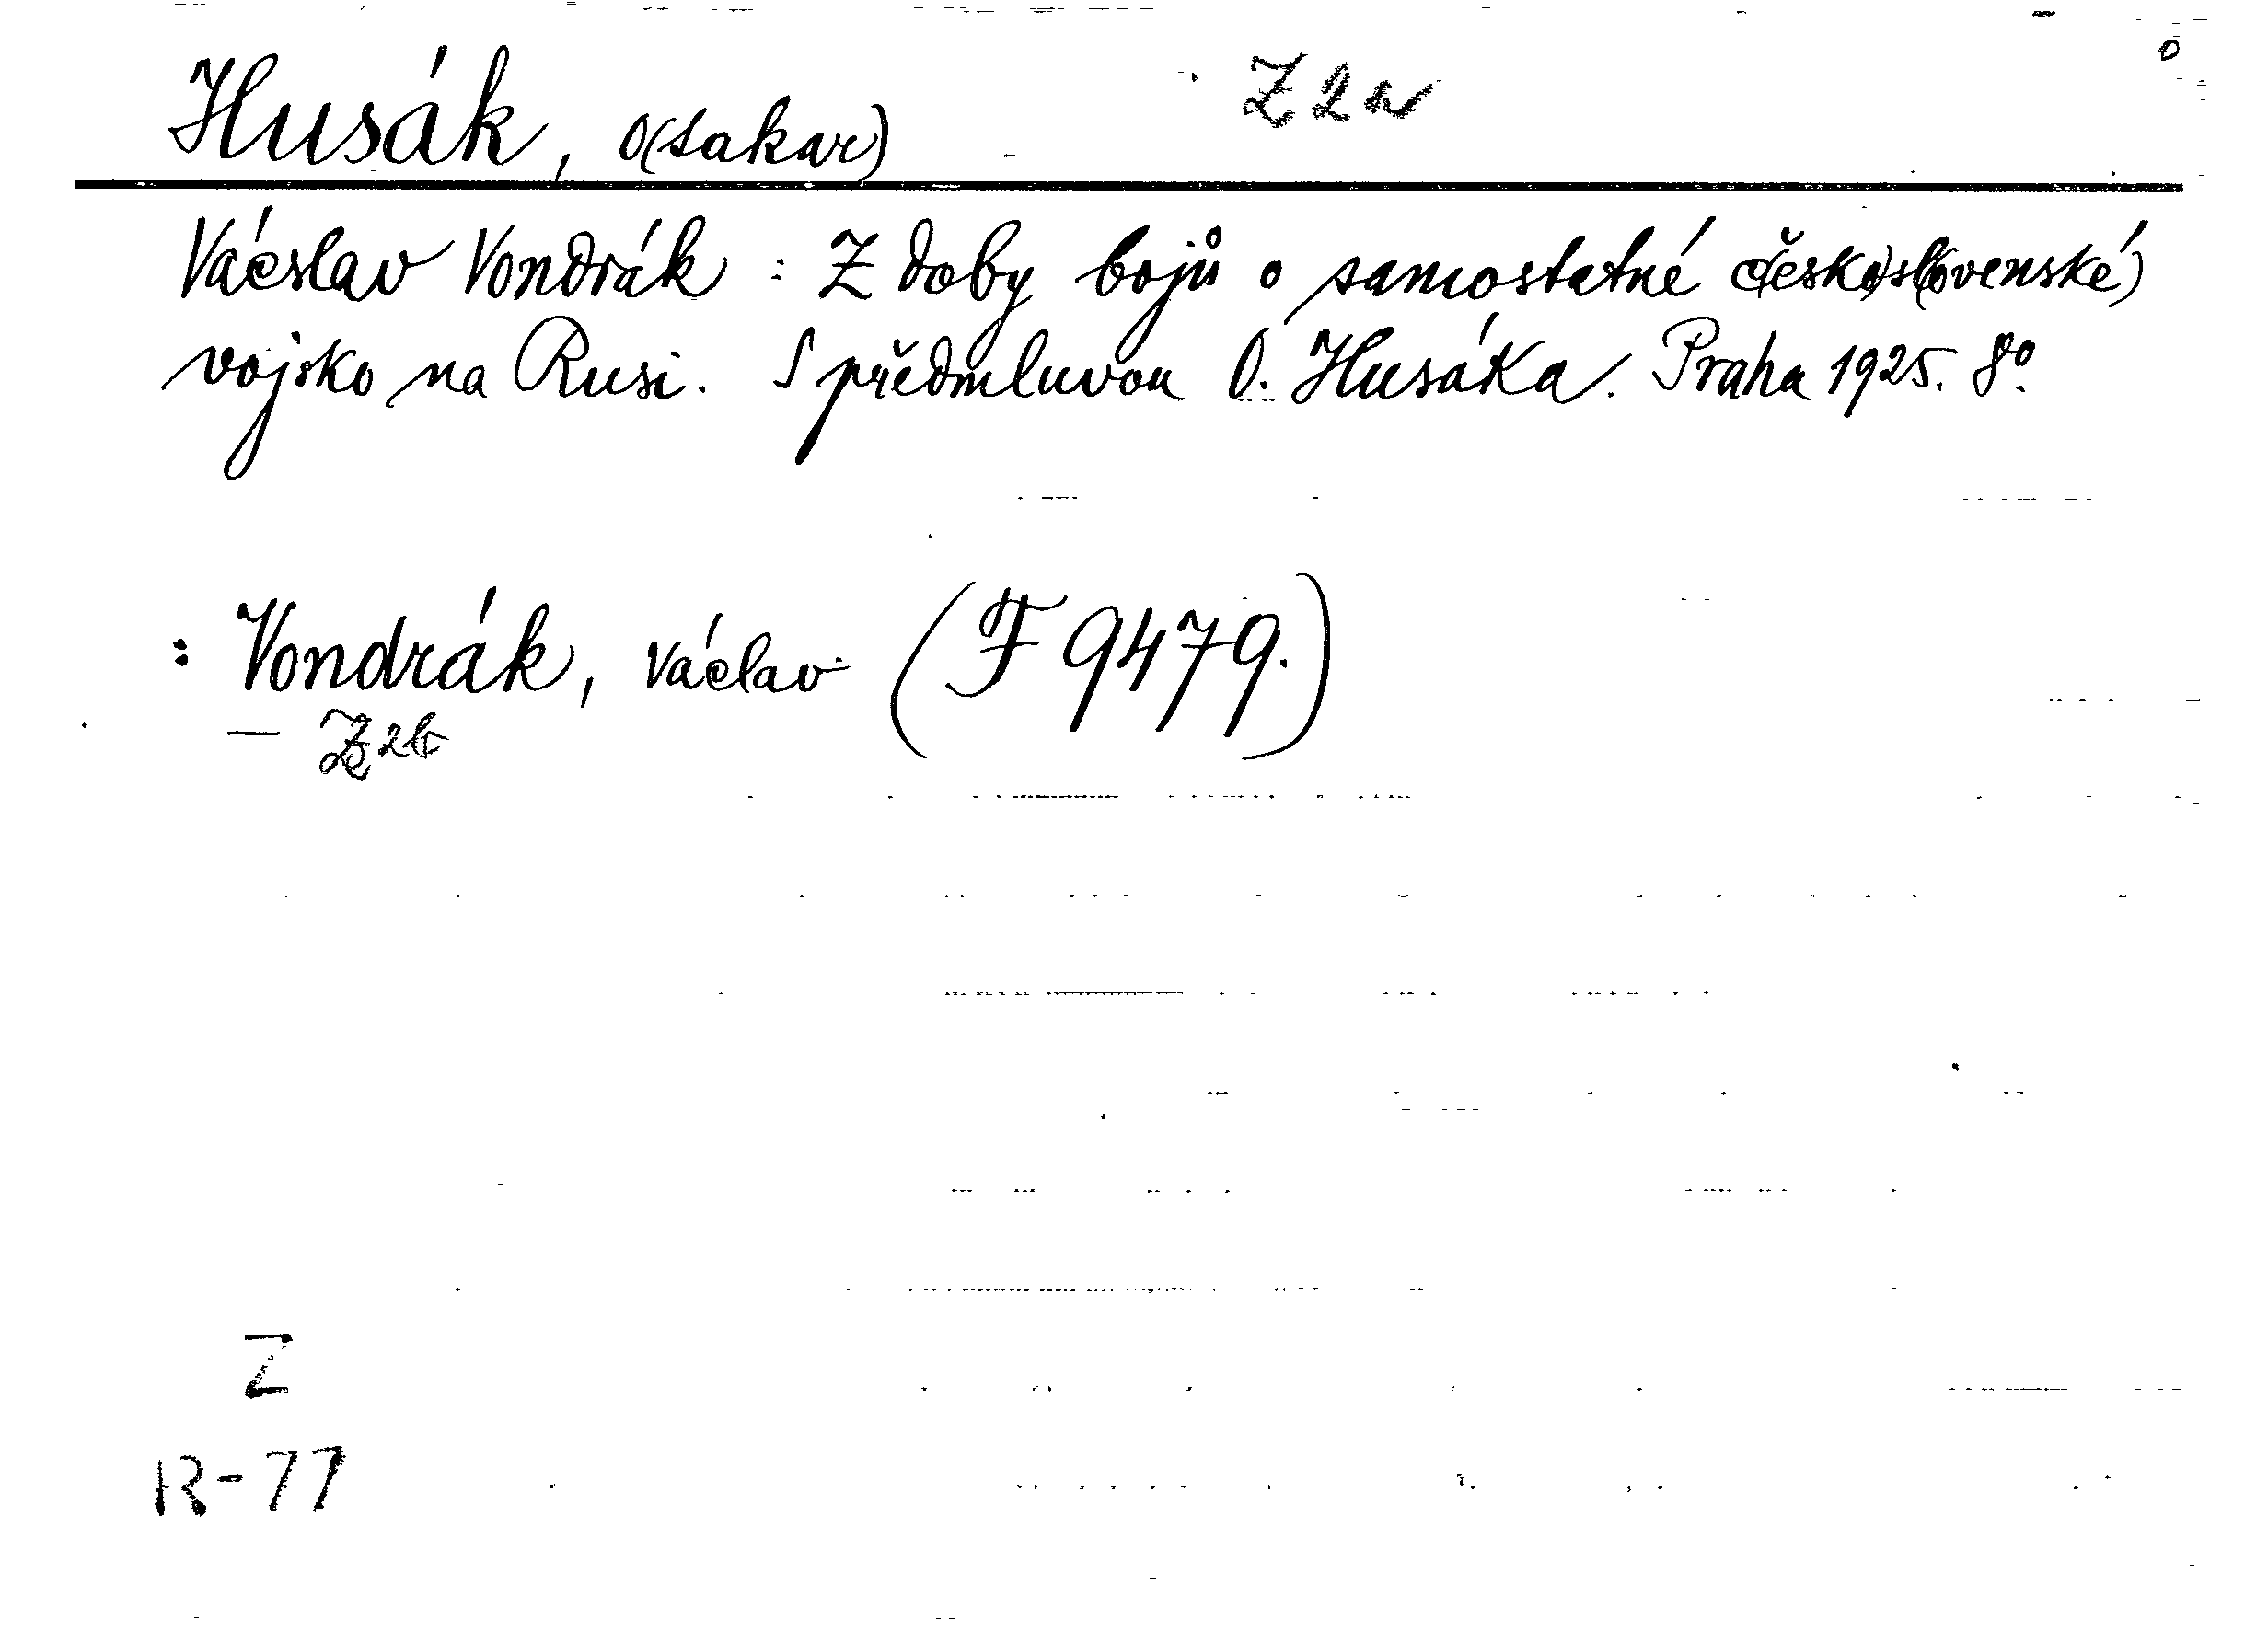 Husák, O(sakar) Z2a
Václav Vondrák : Z doby bojů o samostatné č(esko)sl(ovenské)
vojsko na Rusi. S předmluvou O. Husáka. Praha 1925. 8º.
: Vondrák, Václav (F 9479.)
— Z2b
Z
R-77